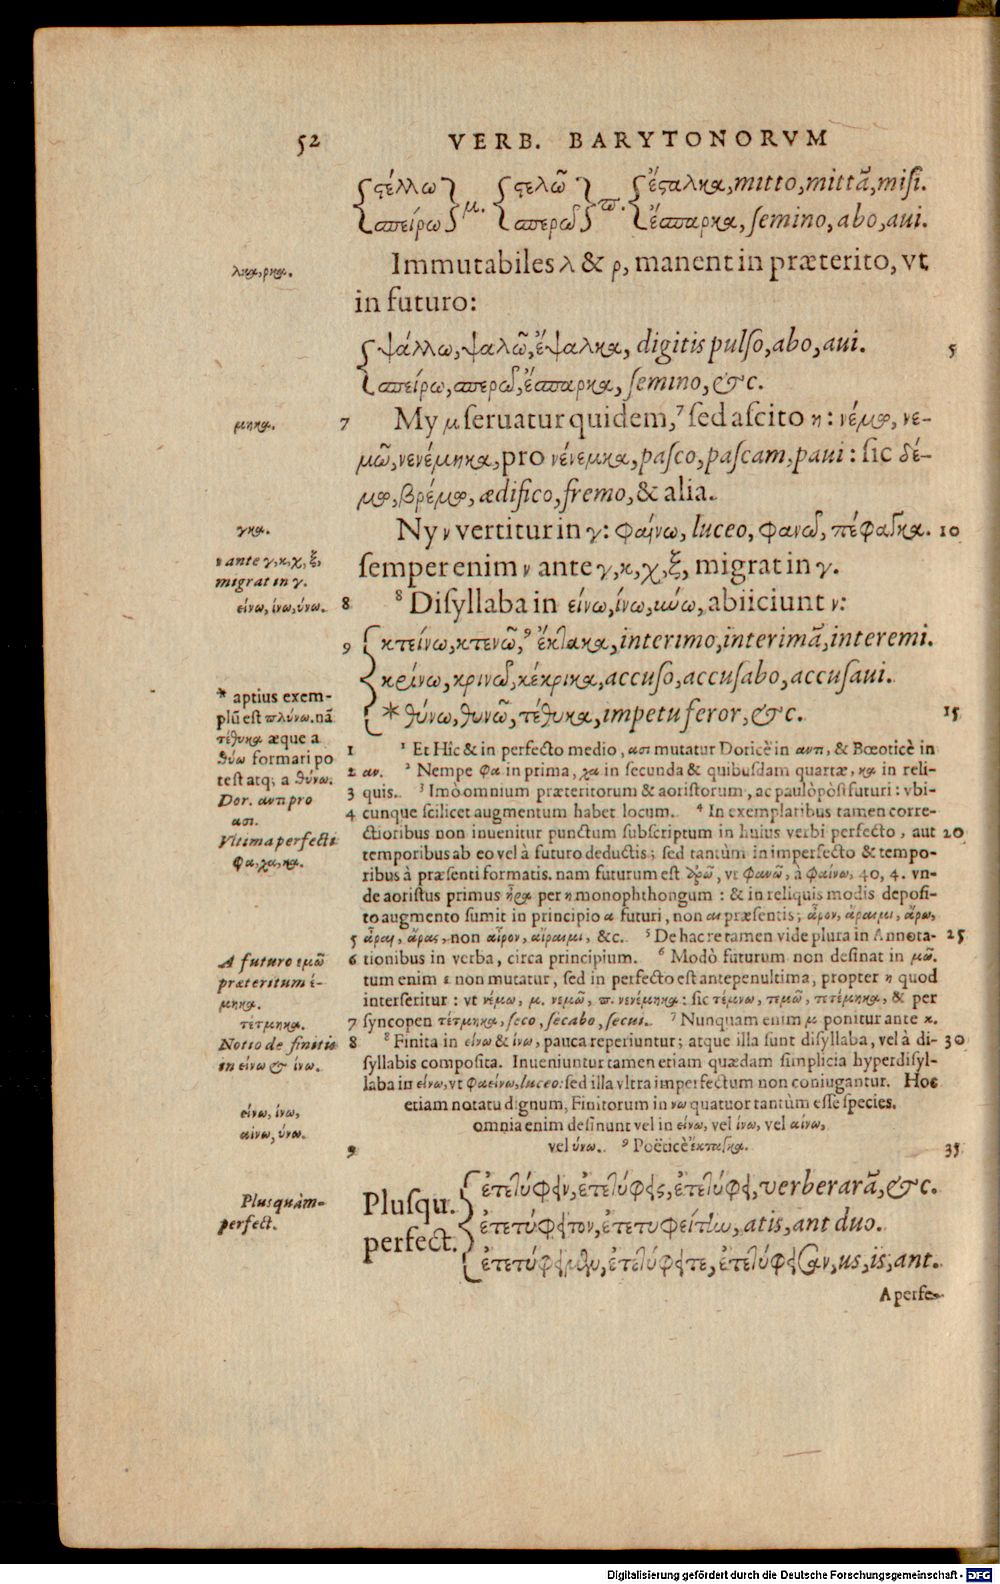 52 VERB. BARYTONORVM
{ϛέλλω} μ. {ϛελῶ} π. {ἔϛαλκα, mitto, mittã, misi.
{σπείρω} {σπερῶ} {ἔσπαρκα, semino, abo, aui.
λκα, ρκα. Immutabiles λ & ρ, manent in præterito, vt
in futuro:
{ψάλλω, ψαλῶ, ἔψαλκα, digitis pulso, abo, aui. 5
{σπείρω, σπερῶ, ἔσπαρκα, semino, &c.
μηκα. 7 My μ seruatur quidem, 7 sed ascito η: νέμω, νε-
μῶ, νενέμηκα, pro νένεμκα, pasco, pascam, paui: sic δέ-
μω, βρέμω, ædifico, fremo, & alia.
γκα. Ny ν vertitur in γ: φαίνω, luceo, φανῶ, πέφαγκα. 10
ν ante γ, κ, χ, ξ, migrat in γ. semper enim ν ante γ, κ, χ, ξ, migrat in γ.
είνω, ίνω, ύνω. 8 8 Disyllaba in είνω, ίνω, ύνω, abiiciunt ν:
9 {κτείνω, κτενῶ, 9 ἔκτακα, interimo, interimã, interemi.
κρίνω, κρινῶ, κέκρικα, accuso, accusabo, accusaui.
* θύνω, θυνῶ, τέθυκα, impetu feror, &c. 15
* aptius exem-
plũ est πλύνω. nã
τέθυκα æque a
θύω formari po
test atq; a θύνω.
Dor. αντι pro
ασι.
Vltima perfecti
φα, χα, κα.
1 1 Et Hîc & in perfecto medio, ασι mutatur Doricè in αντι, & Bœoticè in
2 αν. 2 Nempe φα in prima, χα in secunda & quibusdam quartæ, κα in reli-
3 quis. 3 Imò omnium præteritorum & aoristorum, ac paulòpòst futuri: vbi-
4 cunque scilicet augmentum habet locum. 4 In exemplaribus tamen corre-
ctioribus non inuenitur punctum subscriptum in huius verbi perfecto, aut 20
temporibus ab eo vel à futuro deductis; sed tantùm in imperfecto & tempo-
ribus à præsenti formatis. nam futurum est ἀρῶ, vt φανῶ, à φαίνω, 40, 4. vn-
de aoristus primus ἦρα per η monophthongum: & in reliquis modis deposi-
to augmento sumit in principio α futuri, non αι præsentis; ἆρον, ἄραιμι, ἄρω,
5 ἆραι, ἄρας, non αἶρον, αἴραιμι, &c. 5 De hac re tamen vide plura in Annota- 25
6 tionibus in verba, circa principium. 6 Modò futurum non desinat in μῶ.
tum enim ε non mutatur, sed in perfecto est antepenultima, propter η quod
interseritur: vt νέμω, μ. νεμῶ, π. νενέμηκα: sic τέμνω, τεμῶ, τετέμηκα, & per
7 syncopen τέτμηκα, seco, secabo, secui. 7 Nunquam enim μ ponitur ante κ.
8 8 Finita in είνω & ίνω, pauca reperiuntur; atque illa sunt disyllaba, vel à di- 30
syllabis composita. Inueniuntur tamen etiam quædam simplicia hyperdisyl-
laba in είνω, vt φαείνω, luceo: sed illa vltra imperfectum non coniugantur. Hoc
etiam notatu dignum, Finitorum in νω quatuor tantùm esse species.
omnia enim desinunt vel in είνω, vel ίνω, vel αίνω,
9 vel ύνω. 9 Poëticè ἔκταγκα. 35
A futuro εμῶ
præteritum έ-
μηκα.
τέτμηκα.
Notto de finitis
in είνω & ίνω.
είνω, ίνω,
αίνω, ύνω.
Plusquàm-
perfect.
Plusqu. {ἐτετύφειν, ἐτετύφεις, ἐτετύφει, verberarã, &c.
perfect. ἐτετύφειτον, ἐτετυφείτην, atis, ant duo.
ἐτετύφειμεν, ἐτετύφειτε, ἐτετύφεισαν, us, is, ant.
A perfe-
Digitalisierung gefördert durch die Deutsche Forschungsgemeinschaft - DFG